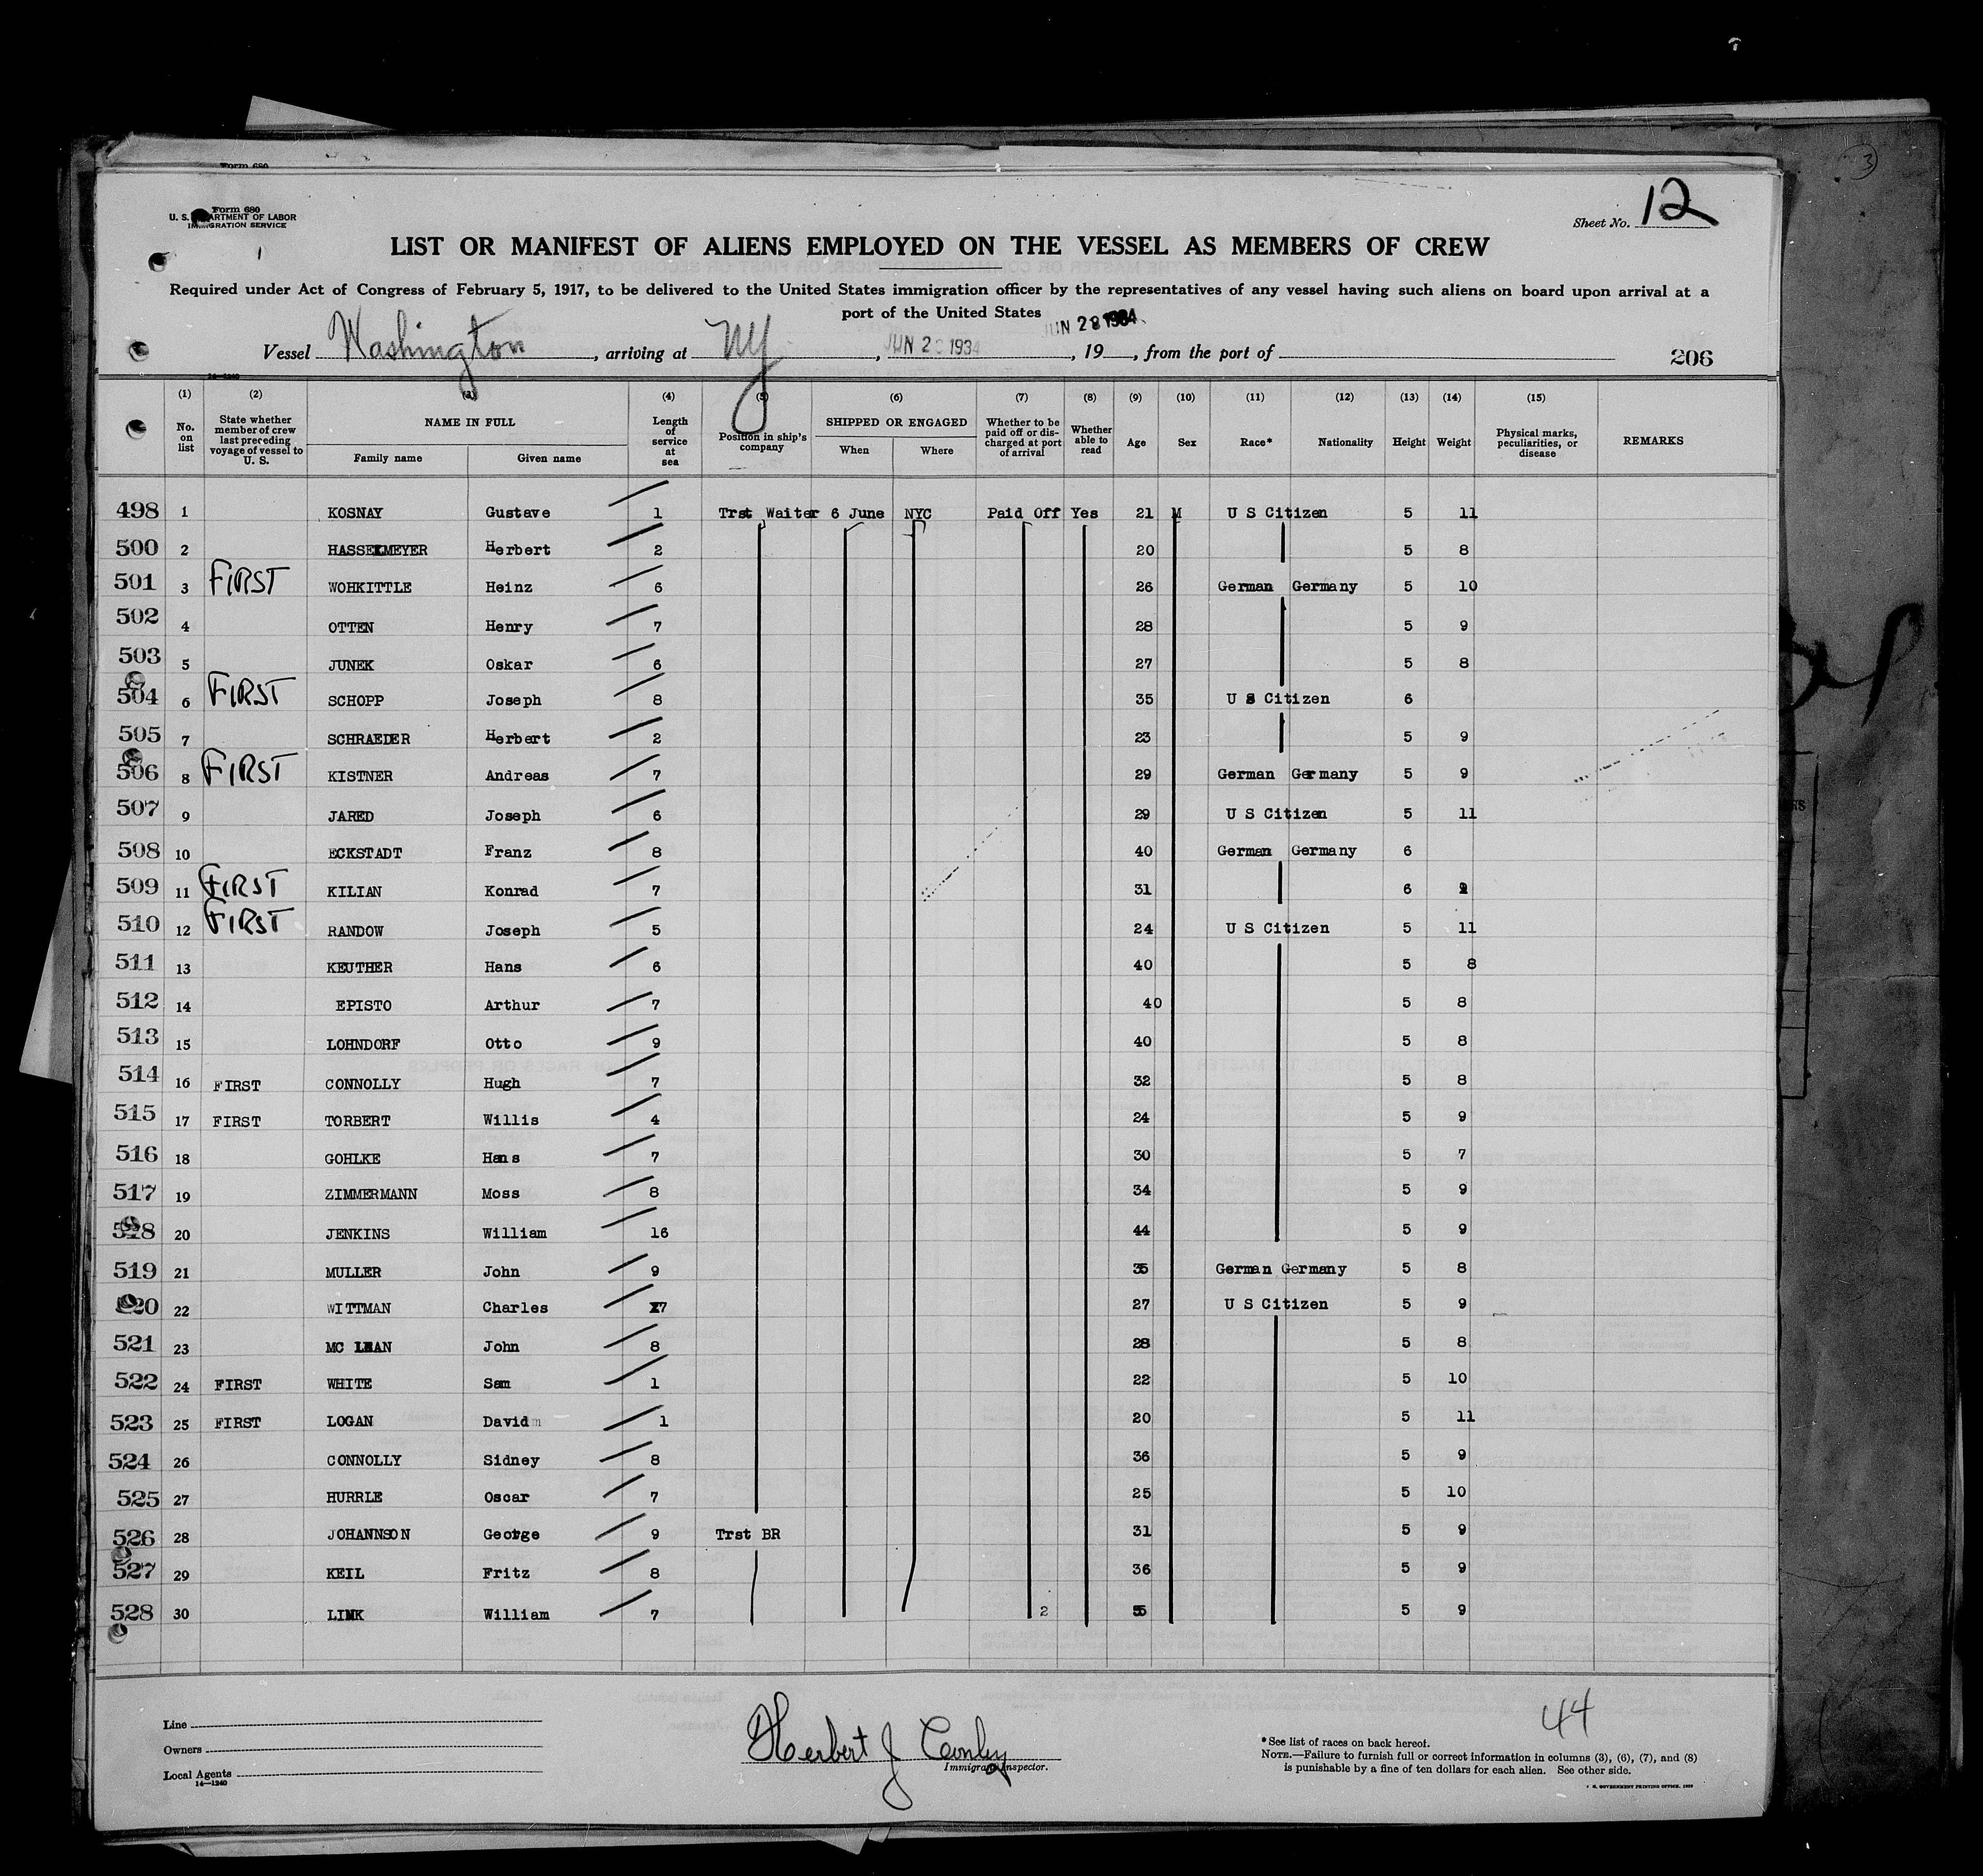 Form 680
Form 680
U. S. DEPARTMENT OF LABOR
IMMIGRATION SERVICE
Sheet No. 12
LIST OR MANIFEST OF ALIENS EMPLOYED ON THE VESSEL AS MEMBERS OF CREW
Required under Act of Congress of February 5, 1917, to be delivered to the United States immigration officer by the representatives of any vessel having such aliens on board upon arrival at a
port of the United States
JUN 28 1934
Vessel Washington, arriving at NY, JUN 2 1934, 19, from the port of 206
14—1240
(1) (2) (3) (4) (5) (6) (7) (8) (9) (10) (11) (12) (13) (14) (15)
No. on list
State whether member of crew last preceding voyage of vessel to U. S.
NAME IN FULL
Family name Given name
Length of service at sea
Position in ship's company
SHIPPED OR ENGAGED
When Where
Whether to be paid off or discharged at port of arrival
Whether able to read
Age Sex Race* Nationality Height Weight
Physical marks, peculiarities, or disease
REMARKS
498 1 KOSNAY Gustave 1 Trst Waiter 6 June NYC Paid Off Yes 21 M U S Citizen 5 11
500 2 HASSELMEYER Herbert 2 20 5 8
501 3 FIRST WOHKITTLE Heinz 6 26 German Germany 5 10
502 4 OTTEN Henry 7 28 5 9
503 5 JUNEK Oskar 6 27 5 8
504 6 FIRST SCHOPP Joseph 8 35 U S Citizen 6
505 7 SCHRAEDER Herbert 2 23 5 9
506 8 FIRST KISTNER Andreas 7 29 German Germany 5 9
507 9 JARED Joseph 6 29 U S Citizen 5 11
508 10 ECKSTADT Franz 8 40 German Germany 6
509 11 FIRST KILIAN Konrad 7 31 6
510 12 FIRST RANDOW Joseph 5 24 U S Citizen 5 11
511 13 KEUTHER Hans 6 40 5 8
512 14 EPISTO Arthur 7 40 5 8
513 15 LOHNDORF Otto 9 40 5 8
514 16 FIRST CONNOLLY Hugh 7 32 5 8
515 17 FIRST TORBERT Willis 4 24 5 9
516 18 GOHLKE Hans 7 30 5 7
517 19 ZIMMERMANN Moss 8 34 5 9
518 20 JENKINS William 16 44 5 9
519 21 MULLER John 9 35 German Germany 5 8
520 22 WITTMAN Charles 7 27 U S Citizen 5 9
521 23 MC LEAN John 8 28 5 8
522 24 FIRST WHITE Sam 1 22 5 10
523 25 FIRST LOGAN David 1 20 5 11
524 26 CONNOLLY Sidney 8 36 5 9
525 27 HURRLE Oscar 7 25 5 10
526 28 JOHANNSON George 9 Trst BR 31 5 9
527 29 KEIL Fritz 8 36 5 9
528 30 LINK William 7 2 5 9
44
Line
Owners
Local Agents
14—1240
Herbert J
Immigrant Inspector.
*See list of races on back hereof.
NOTE.—Failure to furnish full or correct information in columns (3), (6), (7), and (8)
is punishable by a fine of ten dollars for each alien. See other side.